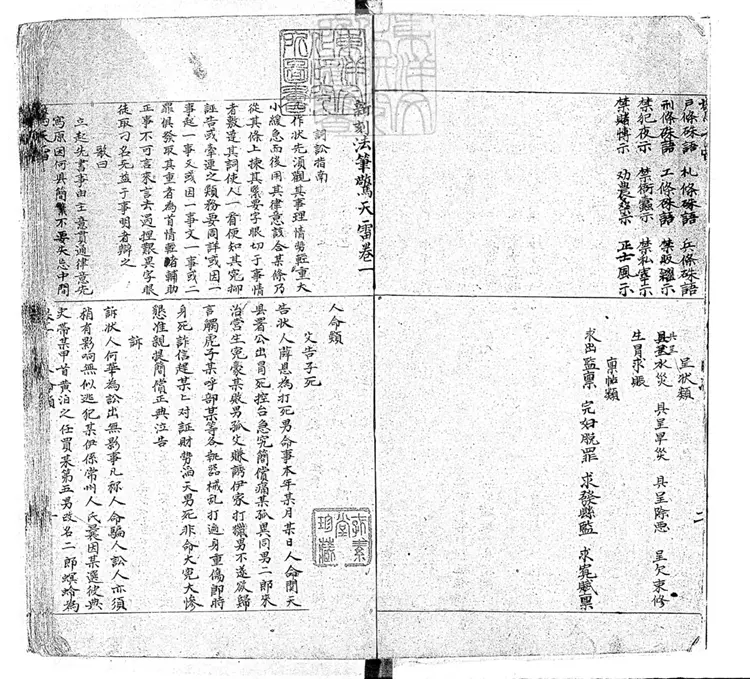 戶條硃語 礼條硃語 兵條硃語
刑條硃語 工條硃語
禁犯夜示 禁衙蠹示 禁私宰示
禁賭博示 劝農桑示 正士風示
呈狀類
具呈水災 具呈旱災 具呈除惡 呈欠束修
生員求賑
稟帖類
求出監稟 完婦脫罪 求發縣監 求寬贓稟
新刻法筆驚天雷卷一
詞訟指南
作狀先須觀其事理情勢輕重大
小緩急而後用其律意該合某條乃
從其條上揀其緊要字眼切于事情
者敷遠其詞使人一看便知其冤抑
誣告或牽連之類務要周詳或因一
事起一事又或因一事文一事或二
罪俱發取其重者為首情輕者輔助
正事不可言來言去過捏艱異字眼
徒取刁名死益于事明者辯之
歌曰
立起先書事由主意貫通律意先
寫原因何與簡繁不要失忘中間
人命類
父告子死
告狀人薛恩為打死男命事本年某月某日人命関天
具署公出冒死控台急究簡償痛某孤與同男二郎來
治営生冤豪某欺男孤父賺誘伊家打獵男不遂欲歸
言觸虎子某呼部某等各執器械乱打遍身重傷即時
身死詐信趕某匕对証財勢滔天男死非命大冤大慘
懇准親提簡償正典泣告
訴
訴狀人何華為訟出無影事凡称人命騙人訟人亦須
稍有影响無似逃犯某伊係常州人氏曩因某選彼典
史帶某甲首黄泊之任買某第五男改名二郎螟蛉為